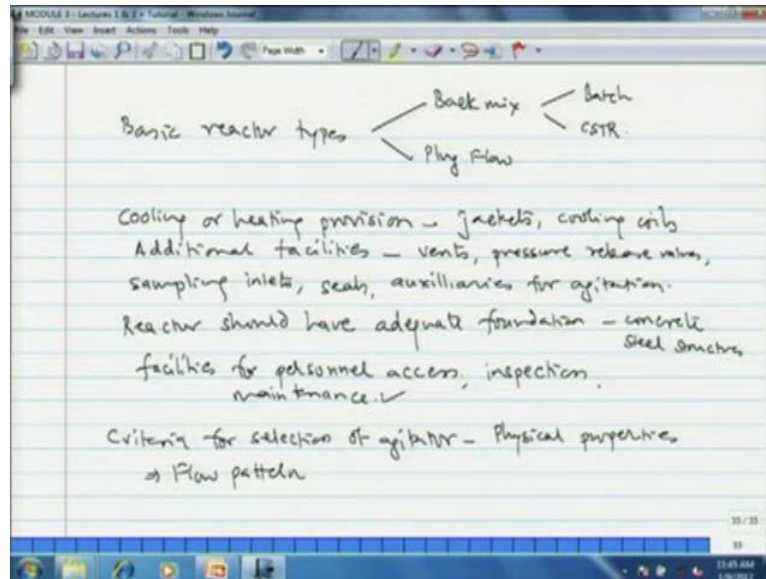 MODULE 3 - Lectures 1 & 2 + Tutorial - Windows Journal
File Edit View Insert Actions Tools Help
Page Width
Basic reactor types
Back mix
Batch
CSTR.
Plug Flow
Cooling or heating provision - jackets, cooling coils
Additional facilities - vents, pressure release valves,
sampling inlets, seals, auxilliaries for agitation.
Reactor should have adequate foundation - concrete
steel structures
facilities for personnel access, inspection,
maintenance.
Criteria for selection of agitator - Physical properties
⇒ Flow pattern
33 / 33
33
11:45 AM